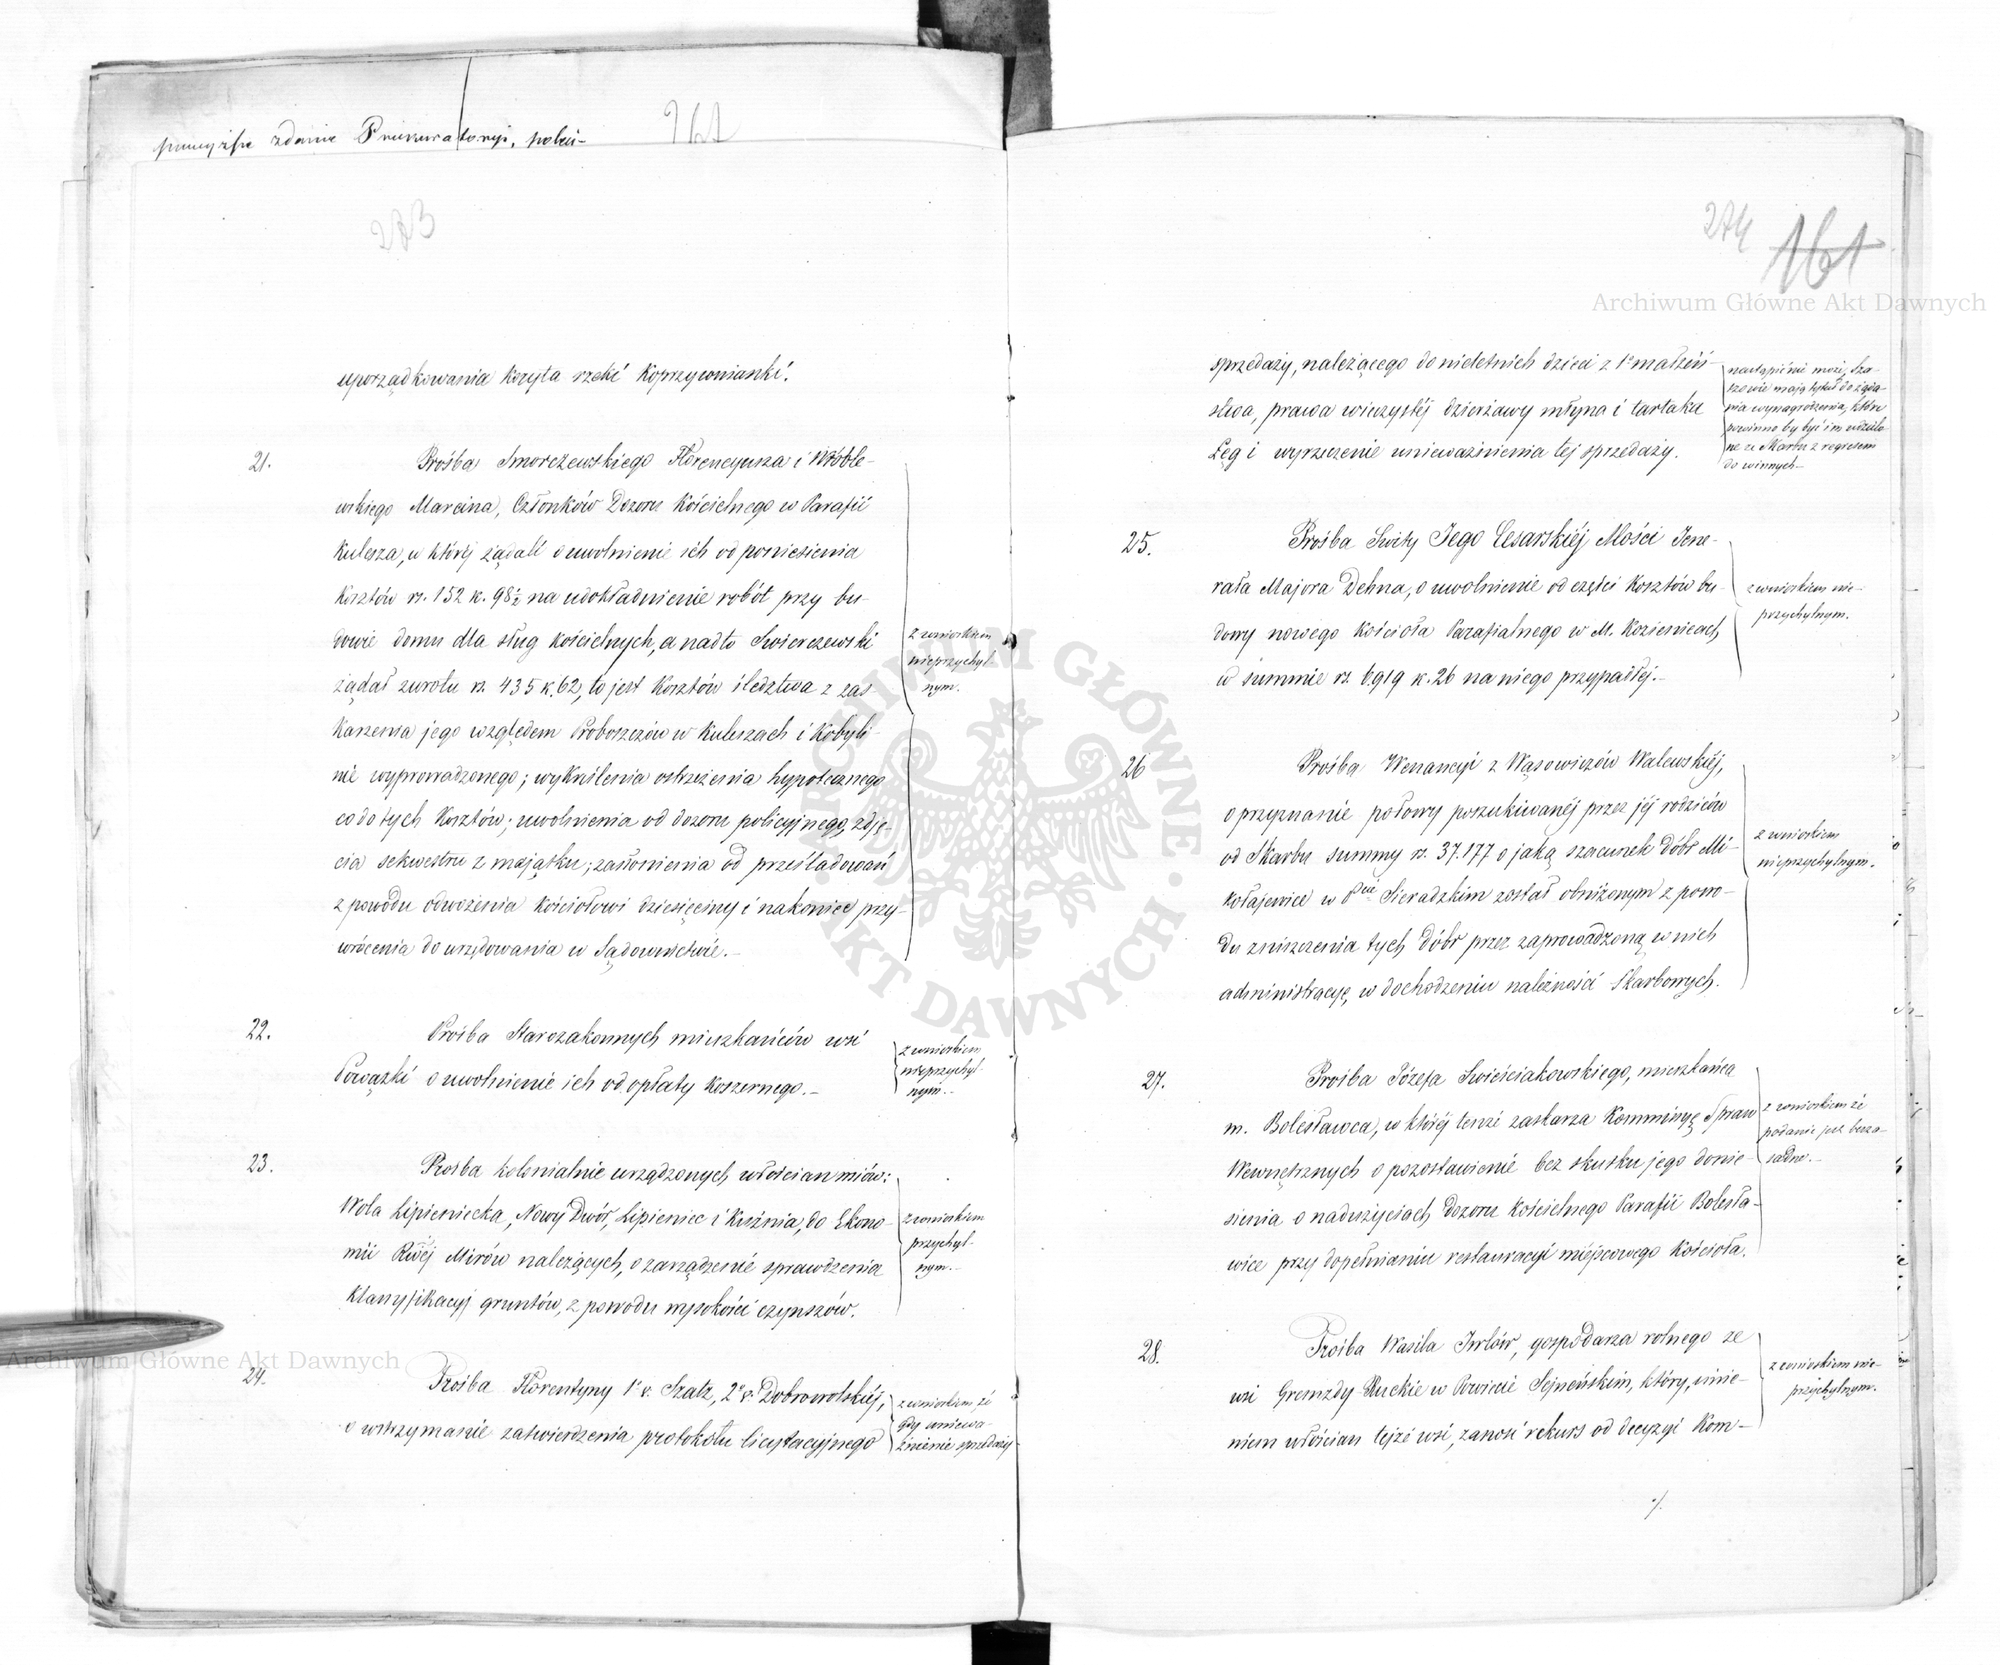 powyższe zdanie Prokuratoryi, polu-
161
273
uporządkowania koryta rzeki Koprzywianki.
21.
Prośba Smorczewskiego Florencyusza i Wróble-
wskiego Marcina, Członków Dozoru Kościelnego w Parafii
Kulesza, w której żądali o uwolnienie ich od poniesienia
kosztów rs. 152 k. 98½ na udokładnienie robót przy bu-
dowie domu dla sług kościelnych, a nadto Swierczewski
żądał zwrotu rs. 435 k. 62, to jest kosztów śledztwa z zas-
karzenia jego względem Proboszczów w Kuleszach i Kobyli-
nie wyprowadzonego; wykreślenia ostrzeżenia hypotecznego
co do tych kosztów; uwolnienia od dozoru policyjnego, zdję-
cia sekwestru z majątku; zasłonienia od prześladowań
z powodu odwożenia kościołowi dziesięciny i nakoniec przy-
wrócenia do urzędowania w Sądownictwie.-
z wnioskiem
nieprzychyl-
nym.
22.
Prośba Starozakonnych mieszkańców wsi
Powązki o uwolnienie ich od opłaty koszernego.-
z wnioskiem
nieprzychyl-
nym.-
23.
Prośba kolonialnie urządzonych włościan wsiów:
Wola Lipieniecka, Nowy Dwór, Lipieniec i Kuźnia, do Ekono-
mii Rwéj Mirów należących, o zarządzenie sprawdzenia
klassyfikacyj gruntów, z powodu wysokości czynszów.
z wnioskiem
przychyl-
nym.-
24.
Prośba Florentyny 1º v. Szatz, 2º v. Dobrowolskiéj,
o wstrzymanie zatwierdzenia protokołu licytacyjnego
z wnioskiem, że
gdy uniewa-
żnienie sprzedaży
274
161
Archiwum Główne Akt Dawnych
sprzedaży, należącego do nieletnich dzieci z 1º małżeń-
stwa, prawa wieczystéj dzierżawy młyna i tartaku
Łęg i wyrzeczenie unieważnienia tej sprzedaży.
nastąpić nie może, Sza-
tzowie mają tytuł do żąda-
nia wynagrodzenia, które
powinno by być im udzielo-
ne ze Skarbu z regresem
do winnych-
25.
Prośba Świty Jego Cesarskiéj Mości Jene-
rała Majora Dehna, o uwolnienie od części kosztów bu-
dowy nowego kościoła Parafialnego w M. Kozienicach,
w summie rs. 6.919 k. 26 na niego przypadłéj.-
z wnioskiem nie-
przychylnym.
26
Prośba Wenancyi z Wąsowiczów Walewskiéj,
o przyznanie połowy poszukiwanéj przez jéj rodziców
od Skarbu summy rs. 37.177 o jaką szacunek dóbr Mi-
kołajewice w Pcie Sieradzkim został obniżonym z powo-
du zniszczenia tych dóbr przez zaprowadzoną w nich
administracyę, w dochodzeniu należności Skarbowych.
z wnioskiem
nieprzychylnym.
27.
Prośba Józefa Swieściakowskiego, mieszkańca
m. Bolesławca, w któréj tenże zaskarza Kommisyę Spraw
Wewnętrznych o pozostawienie bez skutku jego donie-
sienia o nadużyciach Dozoru Kościelnego Parafii Bolesła-
wice przy dopełnianiu restauracyi miejscowego kościoła.
z wnioskiem że
podanie jest bezza-
sadne.-
28.
Prośba Wasila Iwlów, gospodarza rolnego ze
wsi Gremzdy Ruckie w Powiecie Sejneńskim, który, imie-
niem włościan tejże wsi, zanosi rekurs od decyzyi Kom-
z wnioskiem nie-
przychylnym.
./.
ARCHIWUM GŁÓWNE AKT DAWNYCH
Archiwum Główne Akt Dawnych